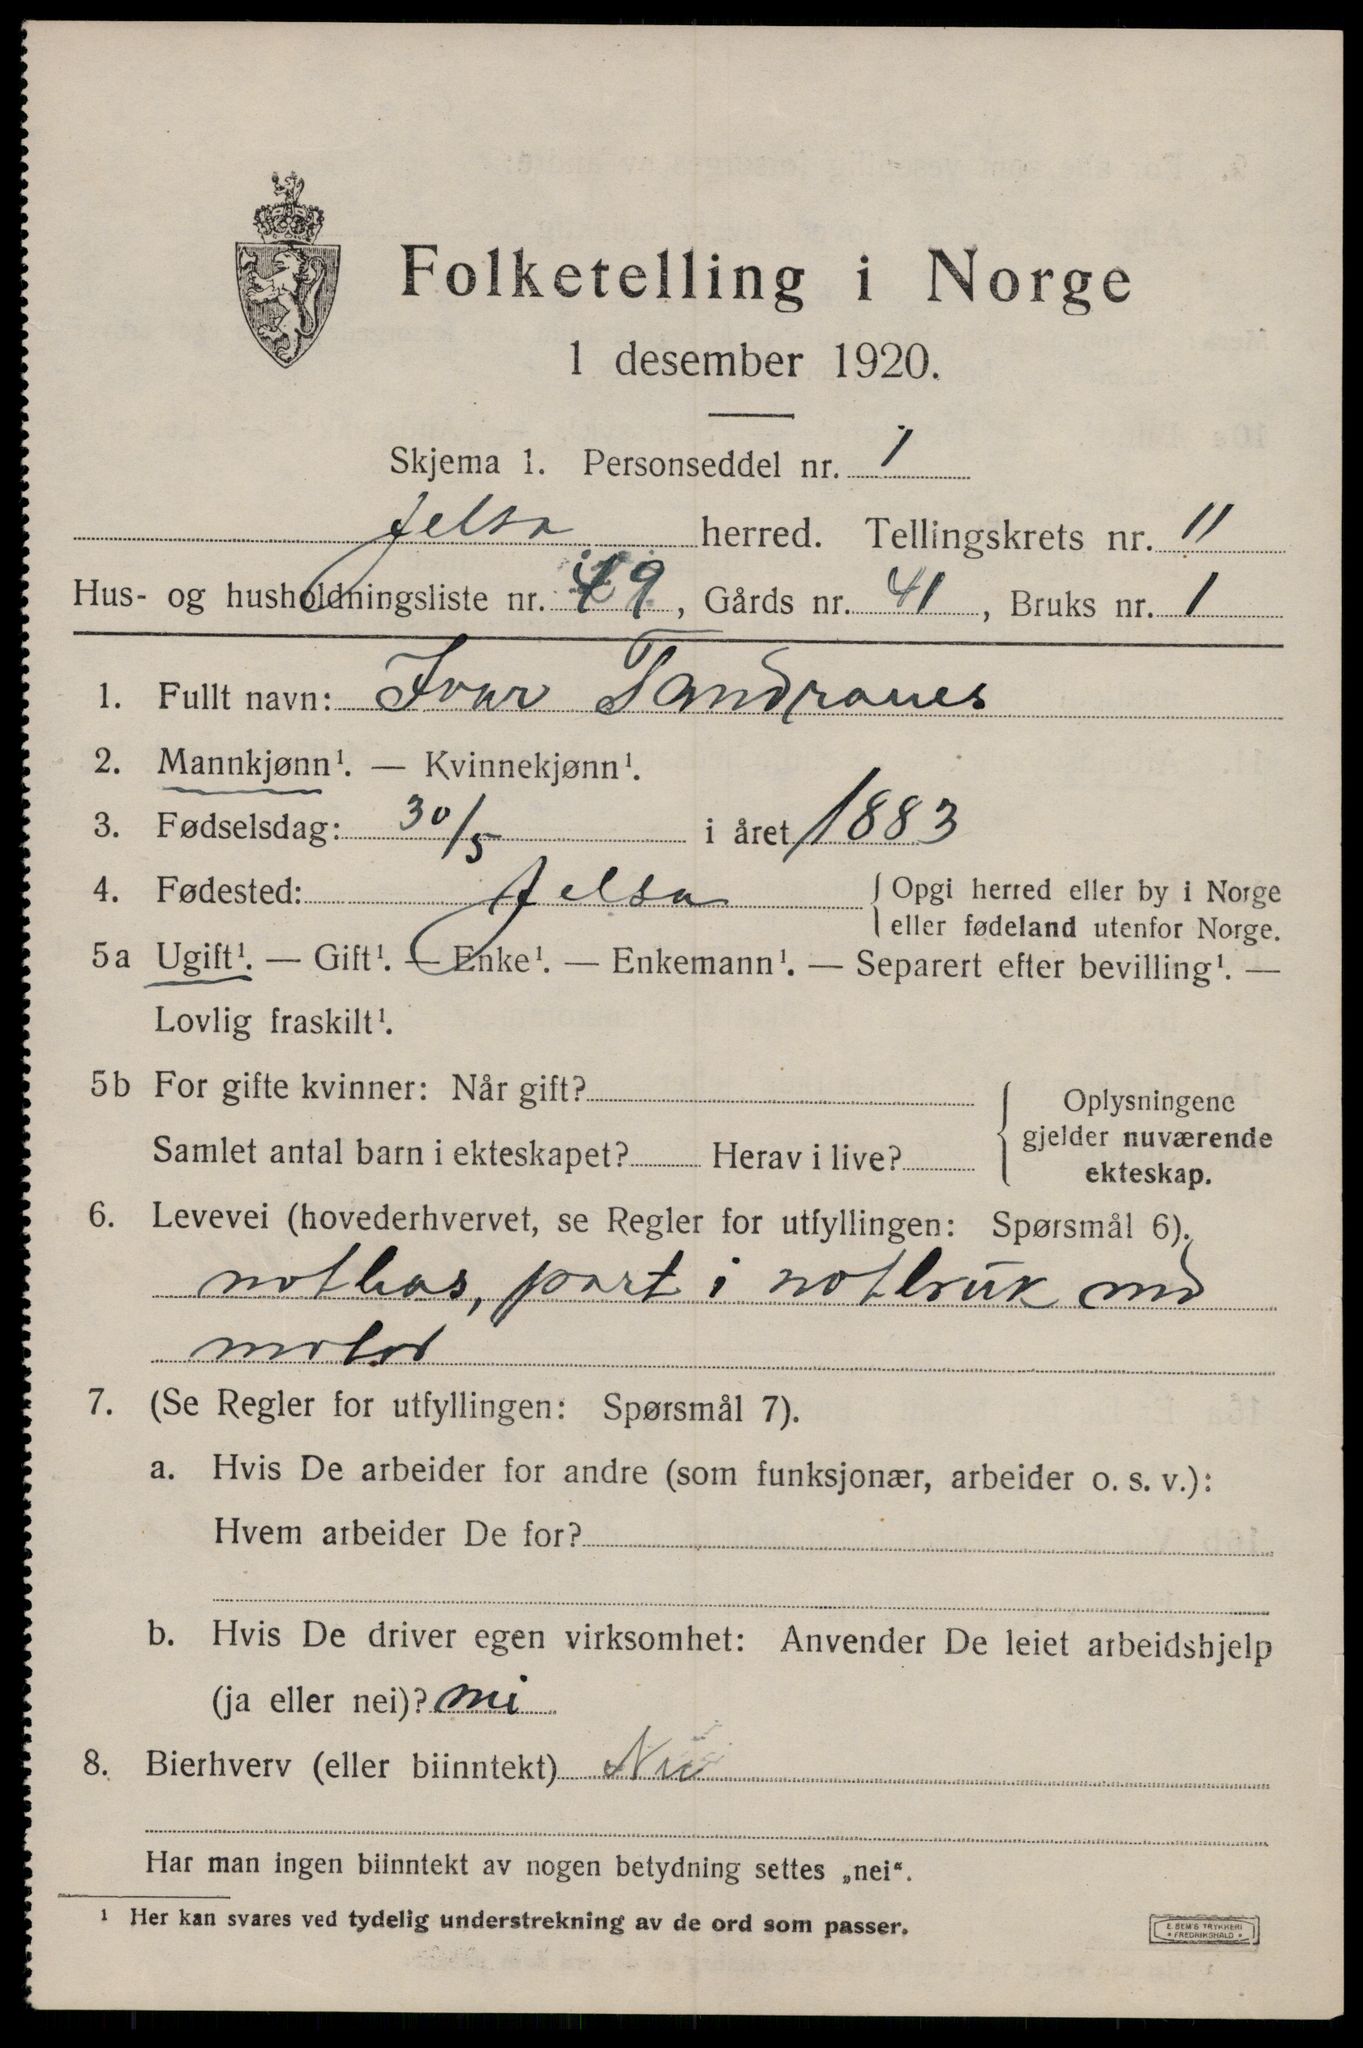 Folketelling i Norge
1 desember 1920.
Skjema 1. Personseddel nr. 1
Jelsa herred. Tellingskrets nr. 11
Hus- og husholdningsliste nr. 49, Gårds nr. 41, Bruks nr. 1
1. Fullt navn: Ivar Tandranes
2. Mannkjønn¹. — Kvinnekjønn¹.
3. Fødselsdag: 30/5 i året 1883
4. Fødested: Jelsa { Opgi herred eller by i Norge
eller fødeland utenfor Norge.
5a Ugift¹. — Gift¹. — Enke¹. — Enkemann¹. — Separert efter bevilling¹. —
Lovlig fraskilt¹.
5b For gifte kvinner: Når gift?
Samlet antal barn i ekteskapet? Herav i live?
Oplysningene
gjelder nuværende
ekteskap.
6. Levevei (hovederhvervet, se Regler for utfyllingen: Spørsmål 6).
notbas, part i notbruk md
motor
7. (Se Regler for utfyllingen: Spørsmål 7).
a. Hvis De arbeider for andre (som funksjonær, arbeider o. s. v.):
Hvem arbeider De for?
b. Hvis De driver egen virksomhet: Anvender De leiet arbeidshjelp
(ja eller nei)? nei
8. Bierhverv (eller biinntekt) Nei
Har man ingen biinntekt av nogen betydning settes „nei“.
¹ Her kan svares ved tydelig understrekning av de ord som passer.
E. SEM'S TRYKKERI
* FREDRIKSHALD *